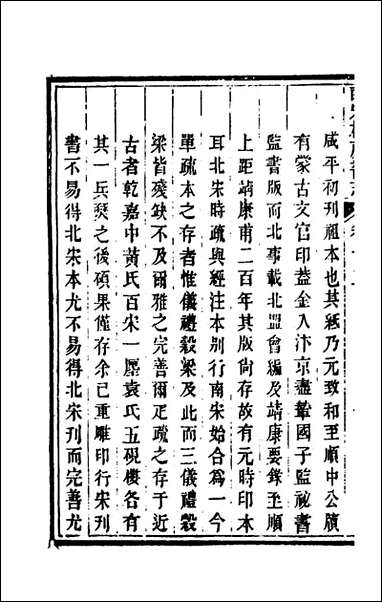 咸平初刊祖本也其紙乃元致和至順中公牘
有蒙古文官印蓋金入汴京盡輦國子監祕書
監書版而北事載北盟會編及靖康要錄至順
上距靖康甫二百年其版尚存故有元時印本
耳北宋時疏與經注本別行南宋始合爲一今
單疏本之存者惟儀禮穀梁及此而三儀禮穀
梁皆殘缺不及爾雅之完善爾疋疏之存于近
古者乾嘉中黃氏百宋一廛袁氏五硯樓各有
其一兵燹之後碩果僅存余已重雕印行宋刊
書不易得北宋本尤不易得北宋刊而完善尤